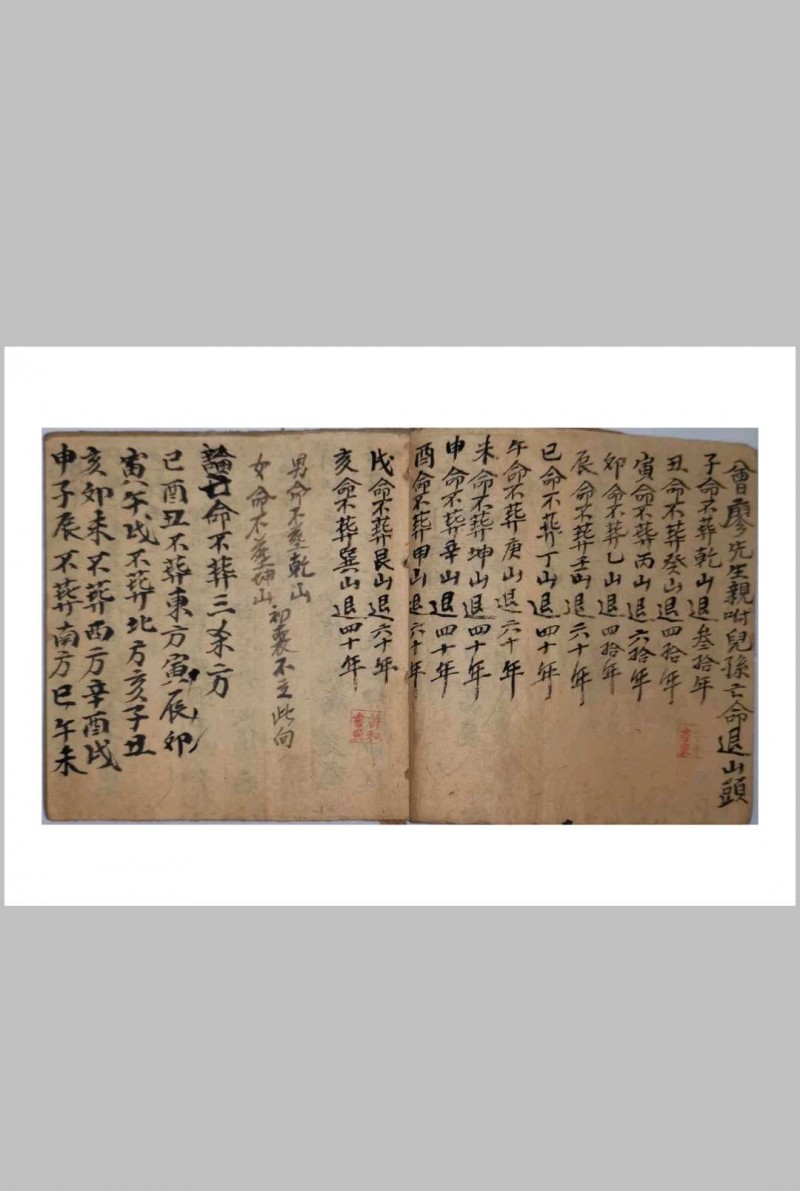 曾廖先生親咐兒孫亡命退山頭
子命不葬乾山退叁拾年
丑命不葬癸山退四拾年
寅命不葬丙山退六拾年
卯命不葬乙山退四拾年
辰命不葬壬山退六十年
巳命不葬丁山退四十年
午命不葬庚山退六十年
未命不葬坤山退四十年
申命不葬辛山退四十年
酉命不葬甲山退六十年
戌命不葬艮山退六十年
亥命不葬巽山退四十年
男命不葬乾山
女命不葬坤山
初喪不立此向
論亡命不葬三杀方
巳酉丑不葬東方寅辰卯
寅午戌不葬北方亥子丑
亥卯未不葬西方辛酉戌
申子辰不葬南方巳午未